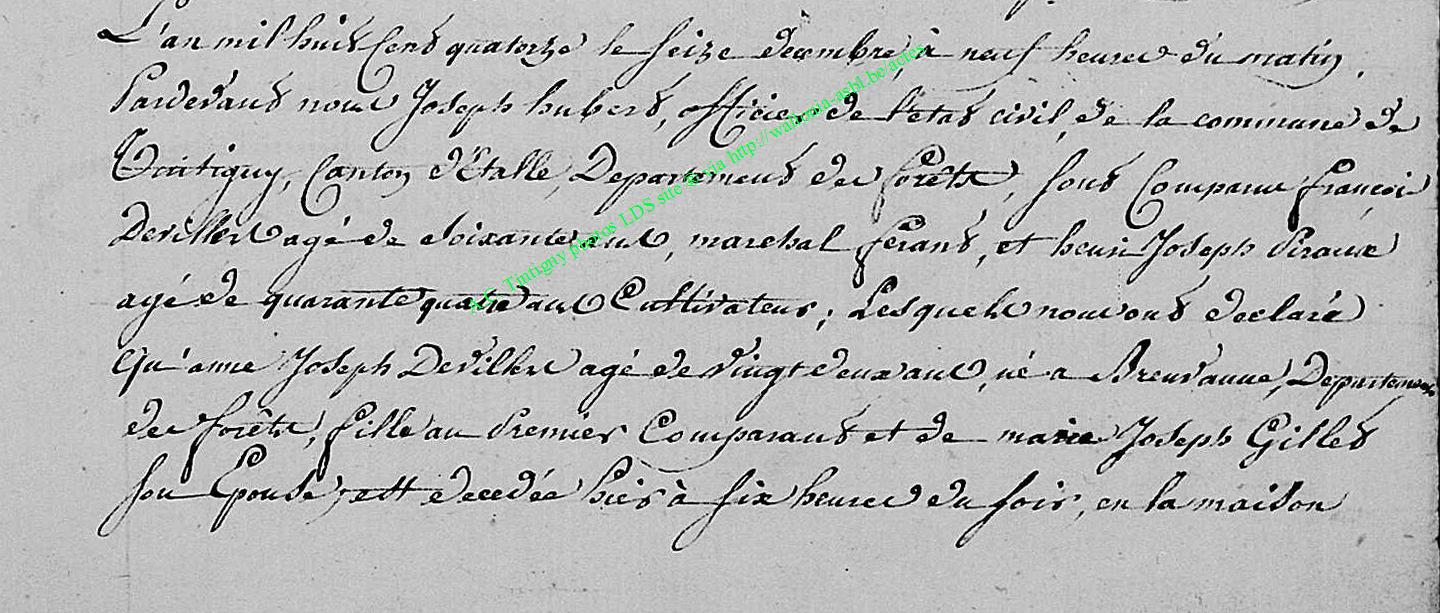 L'an mil huit cent quatorze le seize decembre à neuf heures du matin,
Pardevant nous Joseph hubert, officier de l'etat civil, de la commune de
Tintigny, Canton d'Etalle, Departement des forêts, sont Comparus françois
Devillers agé de Soixante ans, marchal ferant, et henri Joseph
agé de quarante quatre ans Cultivateur; Lesquels nous ont declaré
qu'anne Joseph Devillers agé de vingt deux ans, né a Breuvanne, Departement
des forêts, fille au Premier Comparant et de marie Joseph Gillet
son Epouse, est decedée hier à six heures du soir, en la maison
A.E. Tintigny photos LDS site & via http://wallonia-asbl.be/actes